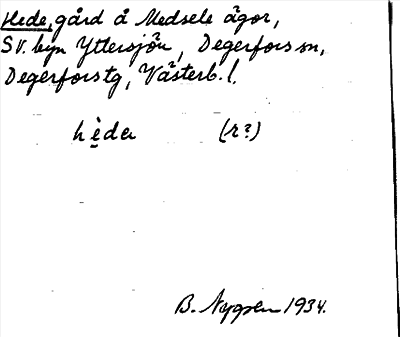 Hede, gård å Medsele ägor,
SV. byn Yttersjön, Degerfors sn,
Degerfors tg, Västerb. l.
hèda (r?)
B. Nygren 1934.